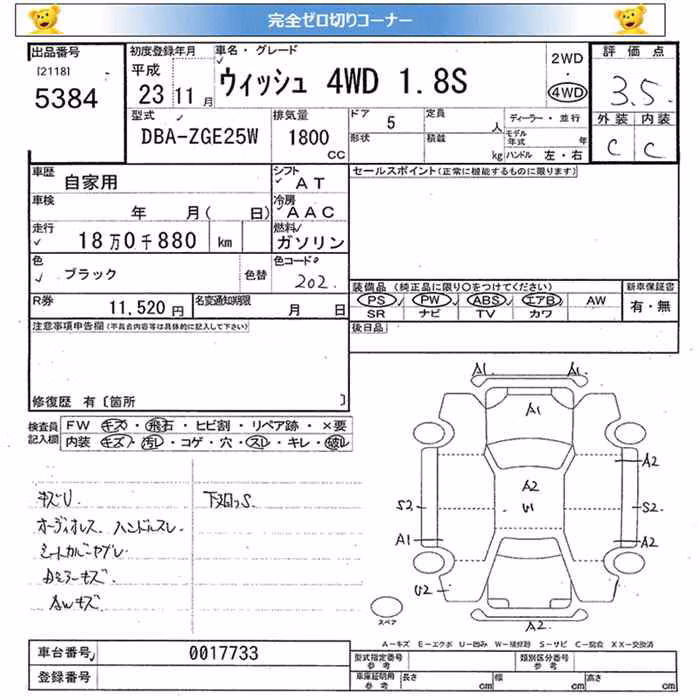 完全ゼロ切りコーナー
出品番号 初度登録年月 車名・グレード 2WD 評価点
[2118] 平成 ウィッシュ 4WD 1.8S ・ 3.5
5384 23 11月 4WD
型式 排気量 ドア 5 定員 人 ディーラー・並行 外装 内装
DBA-ZGE25W 1800 CC 形状 積載 kg モデル年式 年 C C
ハンドル 左・右
車歴 自家用 シフト AT セールスポイント(正常に機能するものに限ります)
車検 年 月( 日) 冷房 AAC
走行 18万0千880 km 燃料 ガソリン
色 ブラック 色替 色コード 202
装備品 (純正品に限り○をつけてください) 新車保証書
R券 11,520円 名変通知期限 月 日 PS PW ABS エアB AW 有・無
SR ナビ TV カワ
注意事項申告欄(不具合内容等は具体的に記入して下さい) 後日品
修復歴 有〔箇所 〕
検査員 FW キズ・飛石・ヒビ割・リペア跡・×要
記入欄 内装 キズ・汚レ・コゲ・穴・スレ・キレ・破レ
キズU. 下廻りS.
オーディオレス ハンドルスレ
シートカバーヤブレ
AWキズ
A1 A1
A1
A2
A2
S2 U1 S2
A1 A2
U2
A2
スペア
A-キズ E-エクボ U-凹み W-補修跡 S-サビ C-腐食 XX-交換済
車台番号 0017733 型式指定番号 参考 類別区分番号 参考
登録番号 車庫証明用 参考 長さ cm 幅 cm 高さ cm